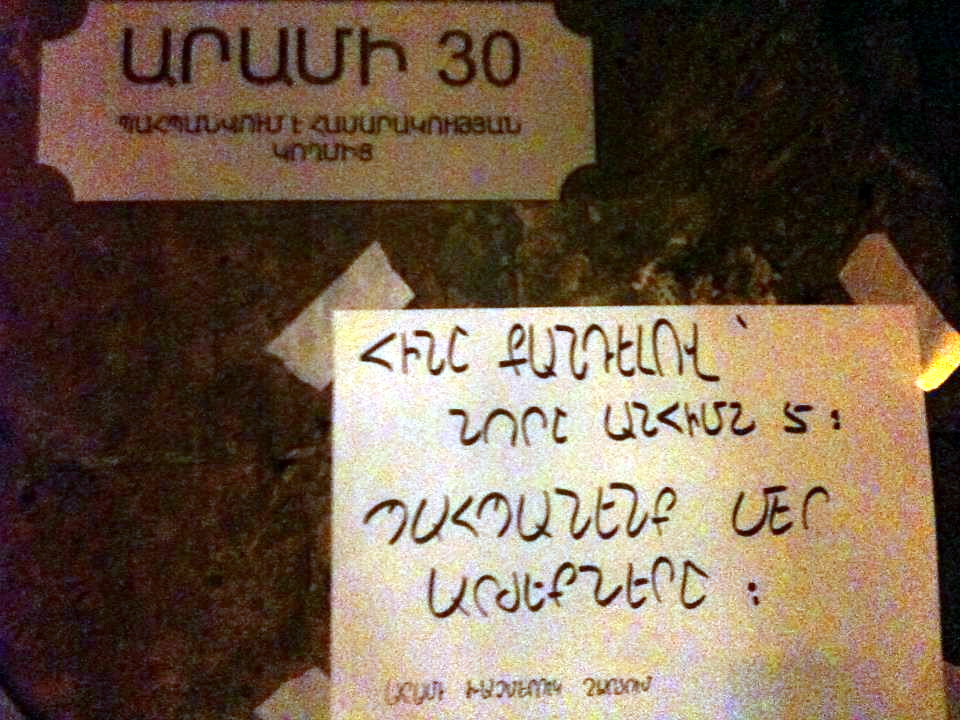 ԱՐԱՄԻ 30
ՊԱՀՊԱՆՎՈՒՄ Է ՀԱՍԱՐԱԿՈՒԹՅԱՆ
ԿՈՂՄԻՑ
ՀԻՆԸ ՔԱՆԴԵԼՈՎ՝
ՆՈՐԸ ԱՆՀԻՄՆ Է։
ՊԱՀՊԱՆԵՆՔ ՄԵՐ
ԱՐԺԵՔՆԵՐԸ։
ԱՐԱՄԻ